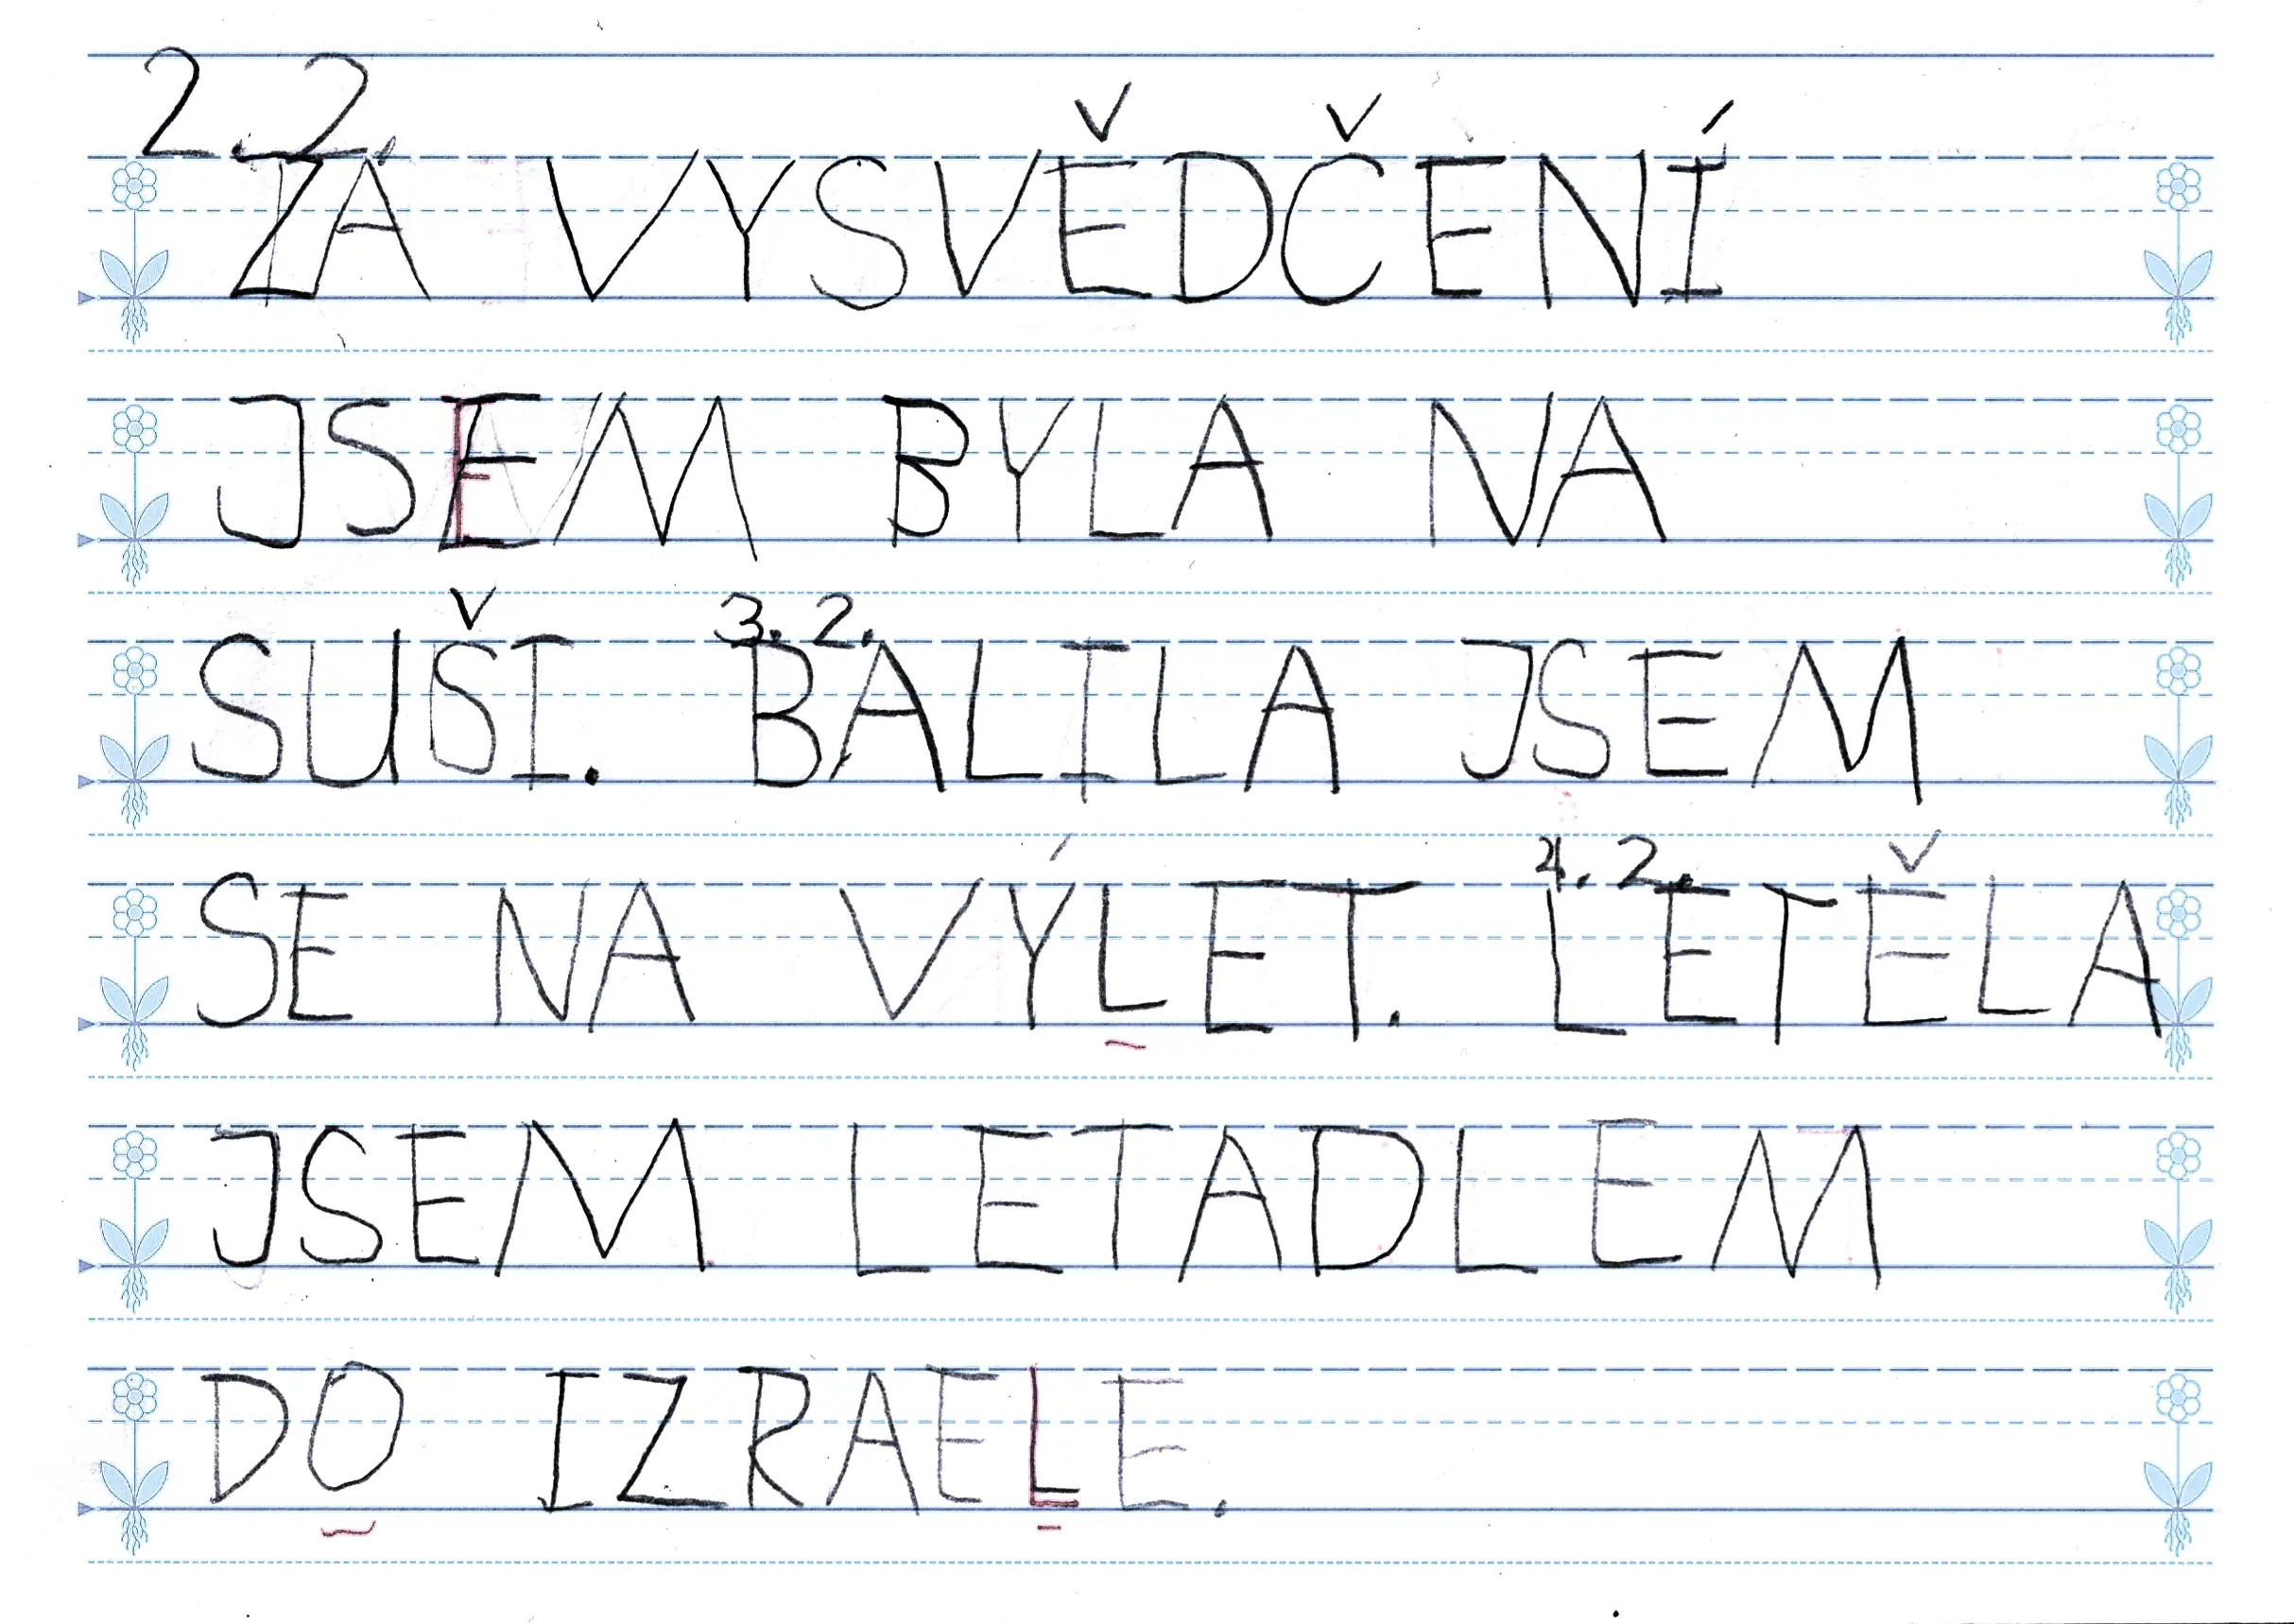 2.2.
ZA VYSVĚDČENÍ
JSEM BYLA NA
3.2.
SUŠI. BALILA JSEM
4.2.
SE NA VÝLET. LETĚLA
JSEM LETADLEM
DO IZRAELE.